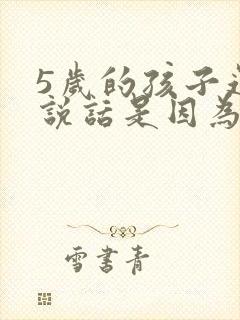 5歲的孩子
說話是因為
雪書青